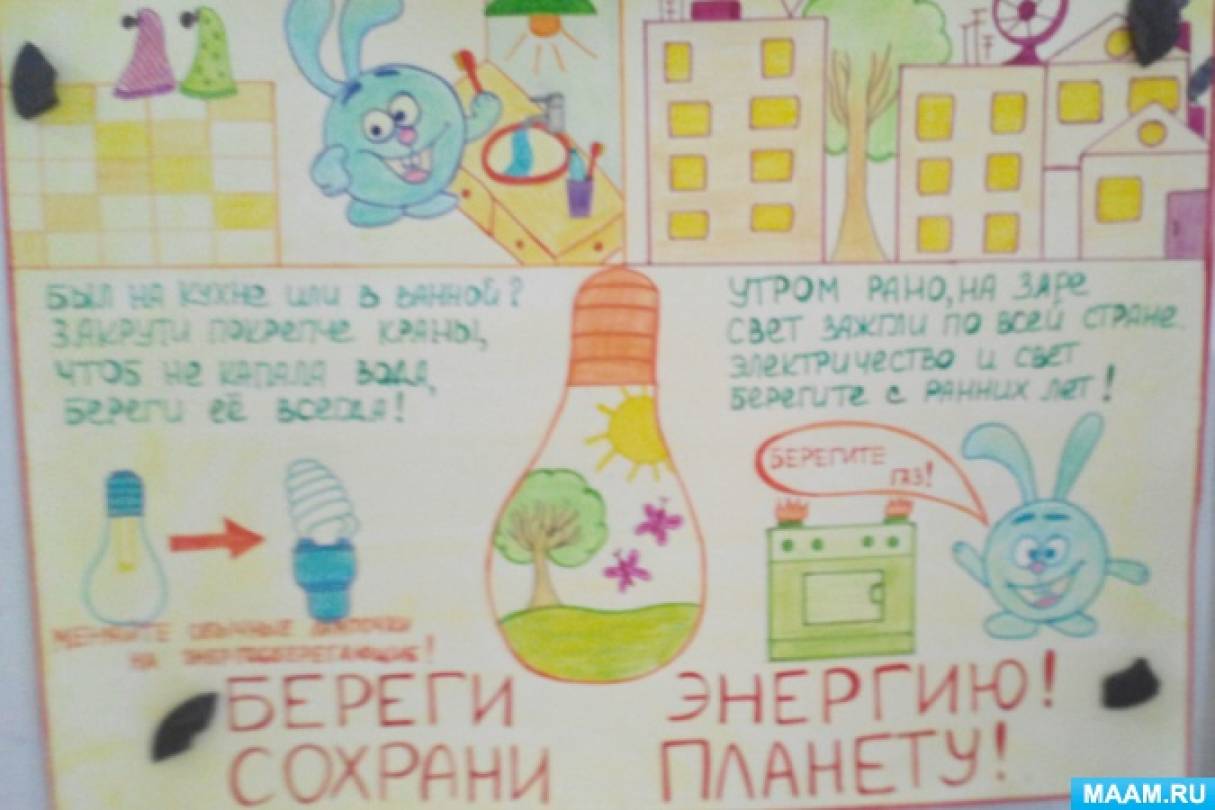 БЫЛ НА КУХНЕ ИЛИ В ВАННОЙ?
ЗАКРУТИ ПОКРЕПЧЕ КРАНЫ,
ЧТОБ НЕ КАПАЛА ВОДА,
БЕРЕГИ ЕЁ ВСЕГДА!
УТРОМ РАНО, НА ЗАРЕ
СВЕТ ЗАЖГЛИ ПО ВСЕЙ СТРАНЕ.
ЭЛЕКТРИЧЕСТВО И СВЕТ
БЕРЕГИТЕ С РАННИХ ЛЕТ!
БЕРЕГИТЕ
ГАЗ!
МЕНЯЙТЕ ОБЫЧНЫЕ ЛАМПОЧКИ
НА ЭНЕРГОСБЕРЕГАЮЩИЕ!
БЕРЕГИ ЭНЕРГИЮ!
СОХРАНИ ПЛАНЕТУ!
MAAM.RU